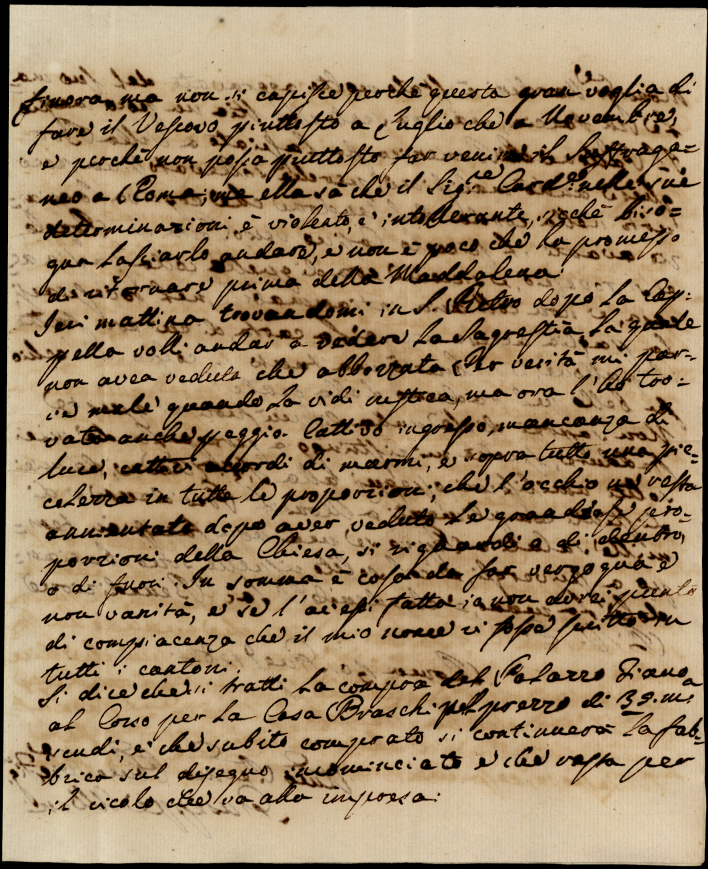 finora, ma non si capisce perchè questa gran voglia di
fare il Vescovo piuttosto a Luglio che a Novembre,
e perchè non possa piuttosto far venire il Suffraga=
neo a Roma; ma ella sà che il Sig.re Card.e nelle sue
determinazioni è violento, e intollerante, sichè biso=
gna lasciarlo andare, e non è poco che ha promesso
di ritornare prima della Maddalena.
Jeri mattina trovandomi in S. Pietro dopo la Cap=
pella volli andar a vedere la Sagrestia la quale
non avea veduta che abbozzata. Per verità mi par=
ve male quando la vidi rustica, ma ora l'ho tro=
vata anche peggio. Cattivo ingresso, mancanza di
luce, cattivi accordi di marmi, e sopra tutto una pic=
colezza in tutte le proporzioni, che l'occhio ne resta
annientato dopo aver veduto le grandiose pro=
porzioni della Chiesa, si riguardi e di dentro,
o di fuori. In somma è cosa da far vergogna e
non vanità, e se l'avessi fatta io non avrei punto
di compiacenza che il mio nome vi fosse scritto in
tutti i cantoni.
Si dice che si tratti la compra del Palazzo Fiano
al Corso per la Casa Braschi pel prezzo di 39.ma
scudi, e che subito comprato si continuerà la fab=
brica sul disegno incominciato e che resta per
il vicolo che va alla impresa.